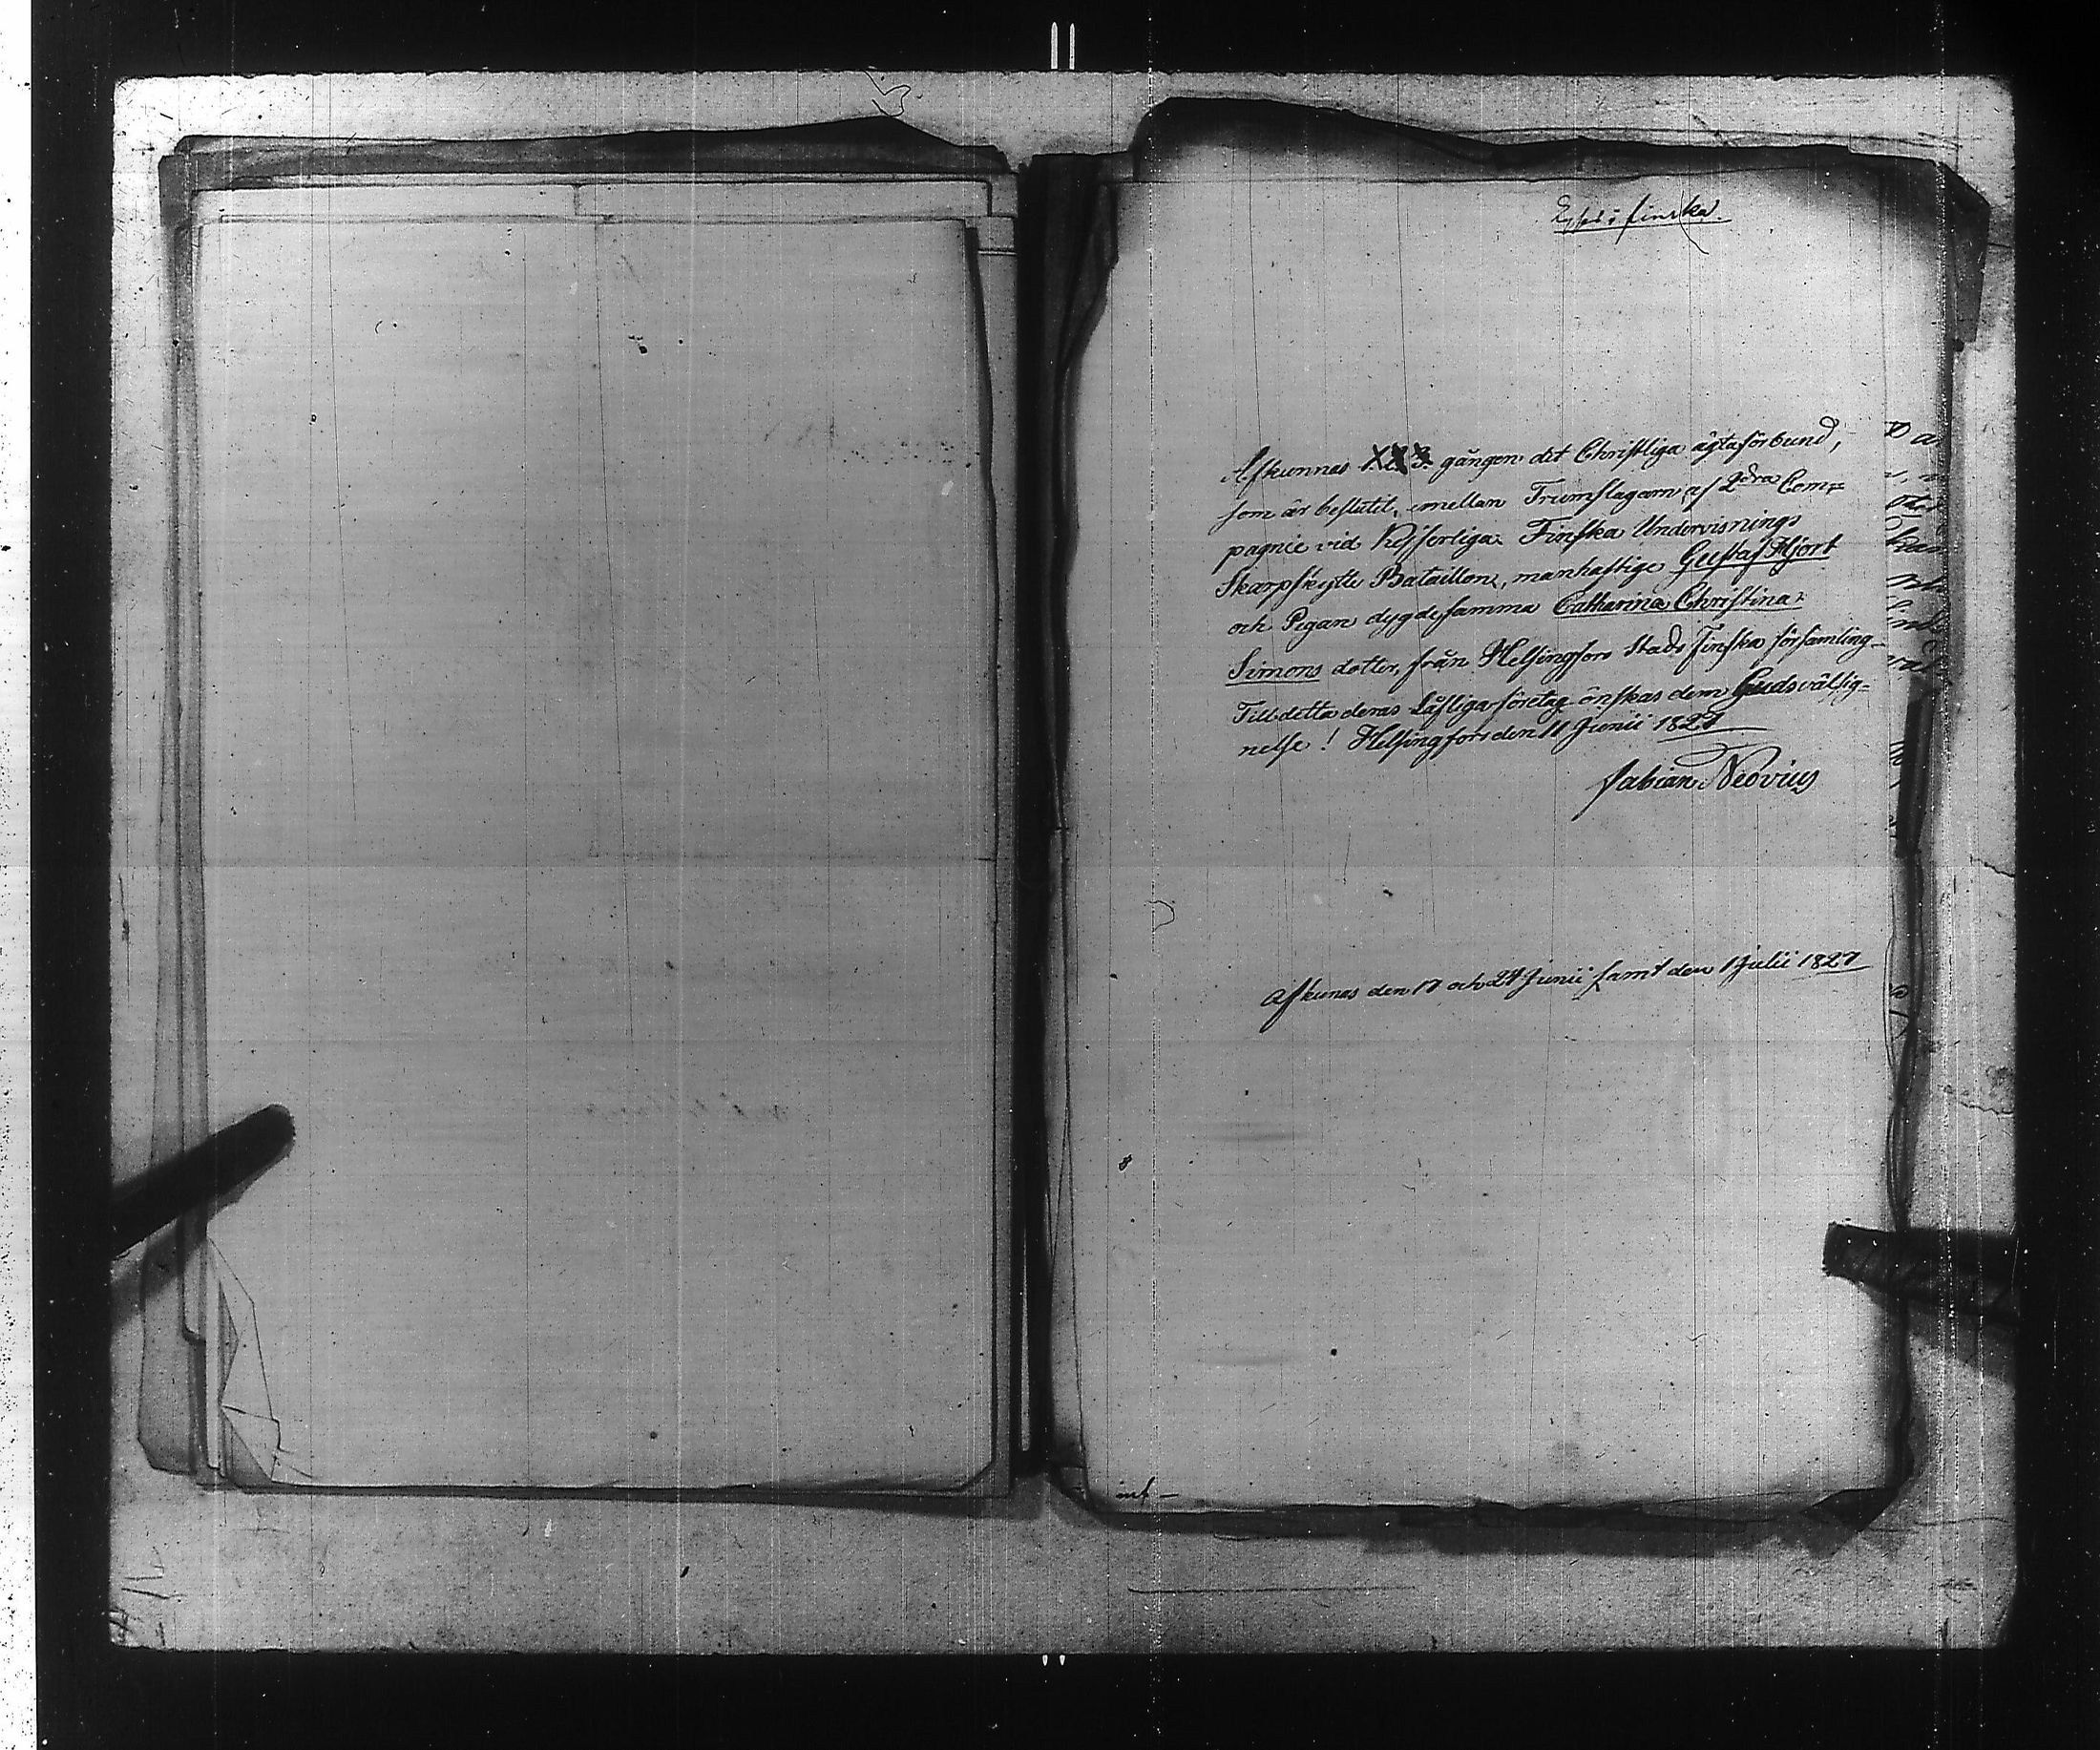 Lyses i finska.
Afkunnas 1. 2. 3. gången det Christliga ägtaförbund,
som är beslutit, emellan Trumslagarn af 2dra Com=
pagnie vid Kejserliga Finska Undervisnings
Skarpskytte Bataillon, manhaftige Gustaf Hjort
och Pigan dygdesamma Catharina Christina
Simons dotter, från Helsingfors Stads Finska församling.
Till detta deras Låfliga företag önskas dem Guds välsig=
nelse! Helsingfors den 11 Junii 1827
Fabian Neovius
Afkunas den 17 och 24 Junii samt den 1 Julii 1827